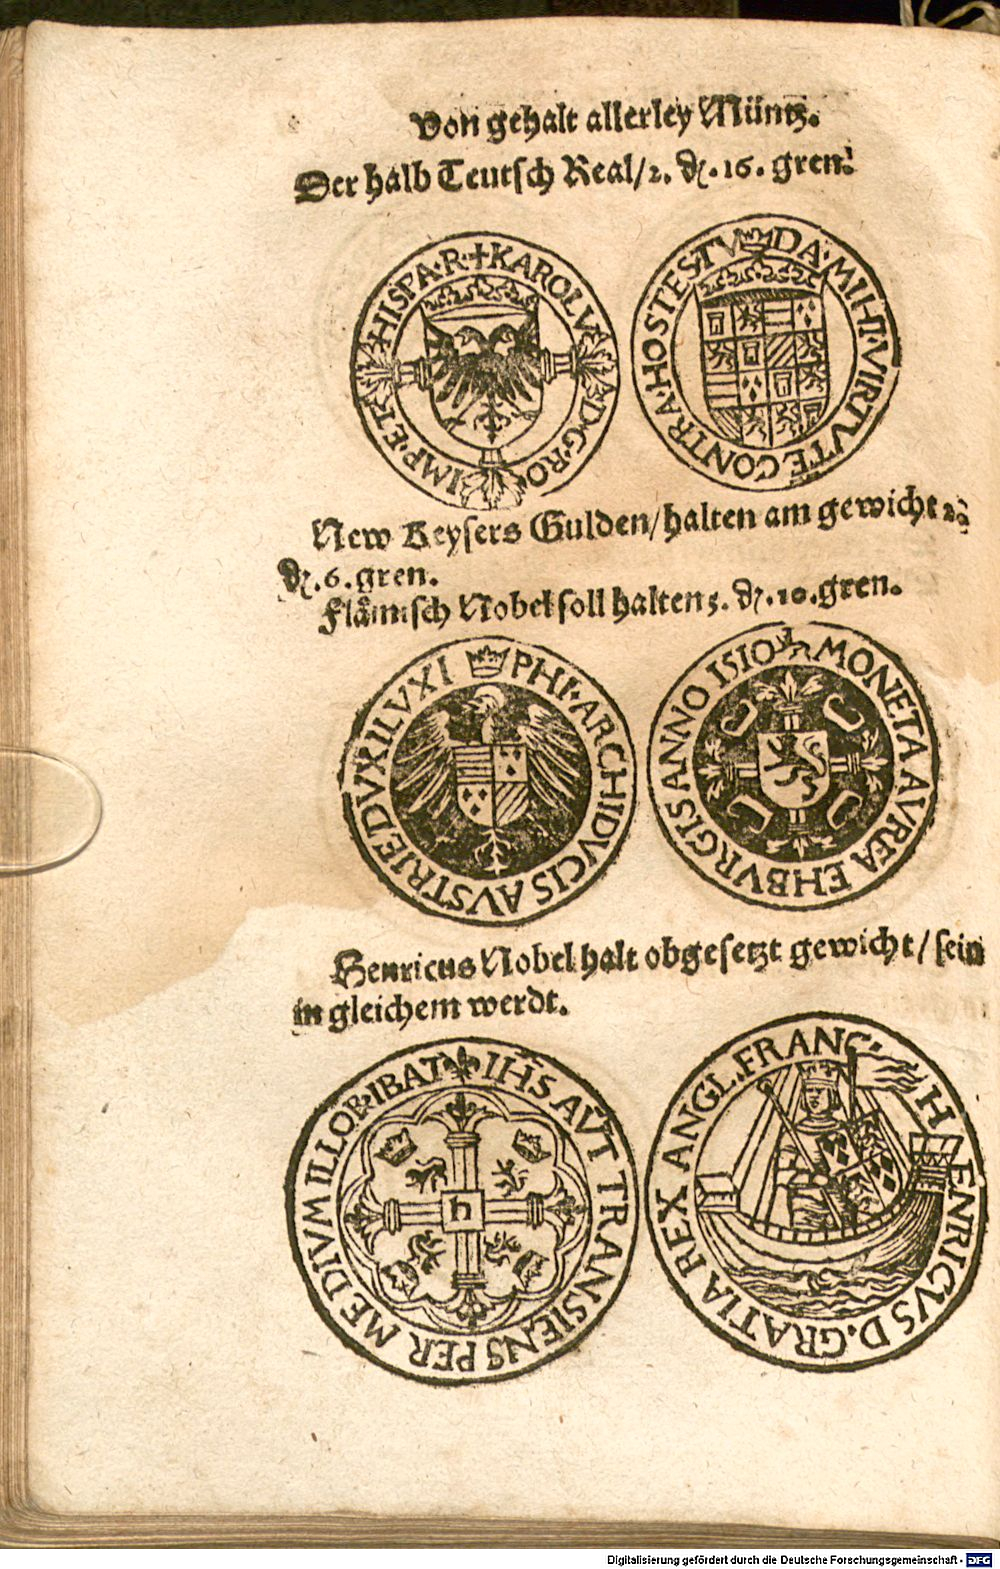 Von gehalt allerley Müntz.
Der halb Teutsch Real/ 2. dz. 16. gren.
✝KAROLVS·D·G·RO IMP·ET·HISPA·R·
DA·MIHI·VIRTVTE CONTRA·HOSTES·TV
New Keysers Gulden/halten am gewicht 2.
dz. 6. gren.
Flämisch Nobel soll halten 5. dz. 10. gren.
PHI·ARCHIDVCIS AVSTRIE DVX ILVXI
MONETA AVREA EHBVRGIS ANNO 1510
Henricus Nobel halt obgesetzt gewicht/ sein
in gleichem werdt.
IHS AVT TRANSIENS PER MEDIVM ILLOR·IBAT
h
HENRICVS D. GRATIA REX ANGL. FRANC·
Digitalisierung gefördert durch die Deutsche Forschungsgemeinschaft - DFG